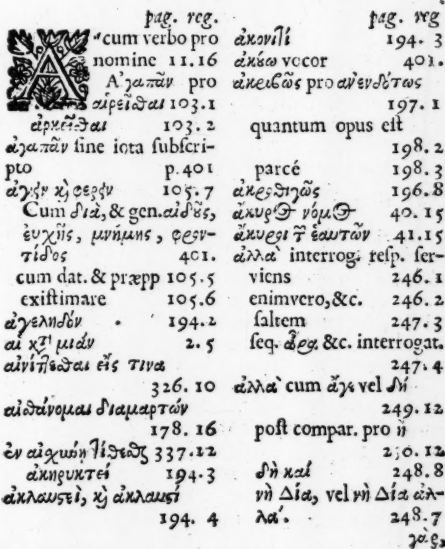 pag. reg.
A cum verbo pro
nomine 11.16
Ἀγαπᾶν pro
αἱρεῖσθαι 103.1
ἀρκεῖσθαι 103.2
ἀγαπᾶν sine iota subscri-
pto p.401
ἄγειν καὶ φέρειν 105.7
Cum διὰ, & gen. αἰδοῦς,
εὐχῆς, μνήμης, φρον-
τίδος 401.
cum dat. & præpp 105.5
existimare 105.6
ἀγεληδόν 194.2
αἱ κτ' μιάν 2.5
αἰνίττεσθαι εἰς τινα
326.10
αἰσθάνομαι διαμαρτών
178.16
ἐν αἰσχύνῃ τίθεσθ 337.12
ἀκηρυκτεί 194.3
ἀκλαυστεί, καὶ ἀκλαυστί
194. 4
pag. reg
ἀκονιτί 194. 3
ἀκούω vocor 401.
ἀκριβῶς pro ἀνενδότως
197.1
quantum opus est
198.2
parcé 198.3
ἀκροθιγῶς 196.8
ἄκυρος νόμος 40.15
ἄκυροι τ ἑαυτῶν 41.15
ἀλλὰ interrog. resp. ser-
viens 246.1
enimvero, &c. 246.2
saltem 247.3
seq. ἆρα. &c. interrogat.
247.4
ἀλλὰ cum ἄγε vel δὴ
249.12
post compar. pro ἢ
250.12
δὴ καί 248.8
νὴ Δία, vel νὴ Δία ἀλ-
λά. 248.7
γὰρ,